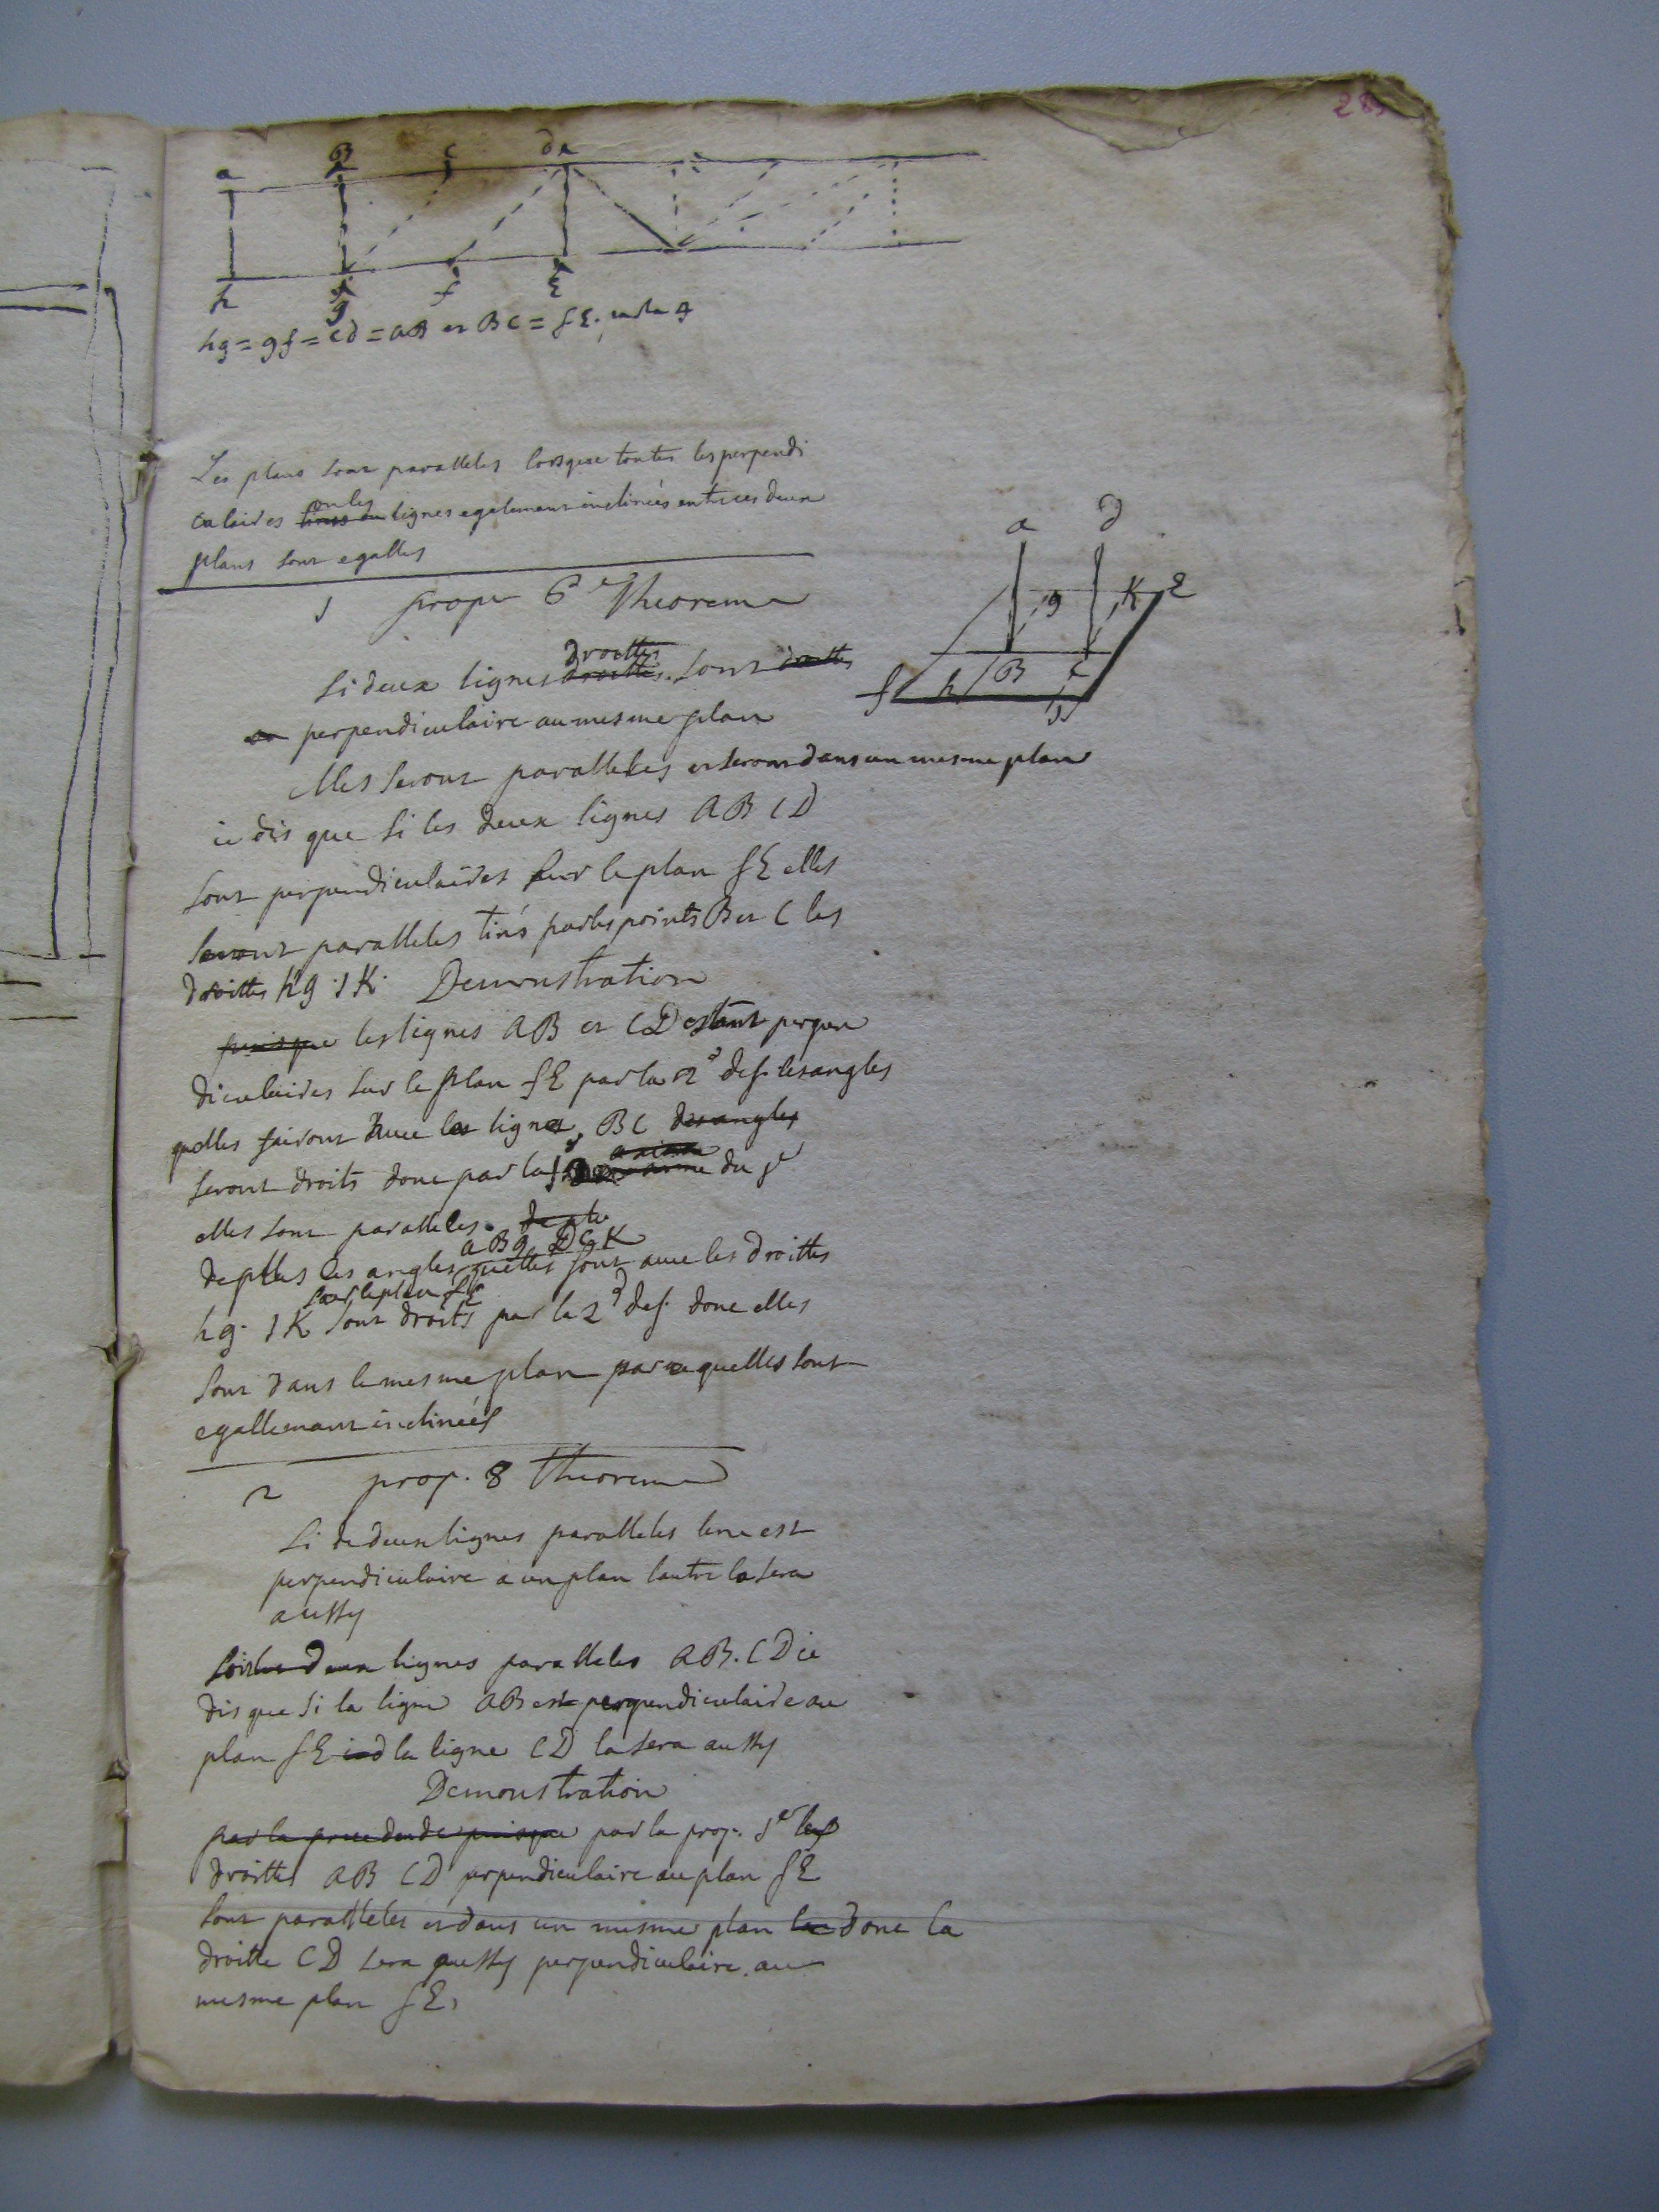 a B C d
h g f E
hg = gf = Cd = aB et BC = fE.
Les plans sont paralleles lorsque toutes les perpendi
culaires ou les lignes egalement inclinées entre ces deux
plans sont egalles
1 prop 6e Theoreme
a d
g K E
f h B C
Si deux lignes droittes sont droittes
perpendiculaire au mesme plan
elles seront paralleles et seront dans un mesme plan
ie dis que si les deux lignes AB CD
sont perpendiculaires sur le plan fE elles
seront paralleles tirés par les points B et C les
droittes hg. IK. Demonstration
puisque les lignes AB et CD estant perpen
diculaires sur le plan fE par la 2e def. les angles
quelles fairont avec la ligne BC des angles
seront droits donc par la du 1er
elles sont paralleles. de plus
aBg DCK
de plus les angles quelles font avec les droittes
sur le plan fE
hg. IK sont droits par la 2e def. donc elles
sont dans le mesme plan parcequelles sont
egallemant inclinées
2 prop. 8 Theoreme
Si de deux lignes paralleles lune est
perpendiculaire a un plan lautre la sera
aussy
Soit les deux lignes paralleles AB. CD ie
dis que si la ligne AB est perpendiculaire au
plan fE la ligne CD la sera aussy
Demonstration
par la precedende puisque par la prop. 1er les
droittes AB CD perpendiculaire au plan fE
sont paralleles et dans un mesme plan donc la
droitte CD sera aussy perpendiculaire au
mesme plan fE.